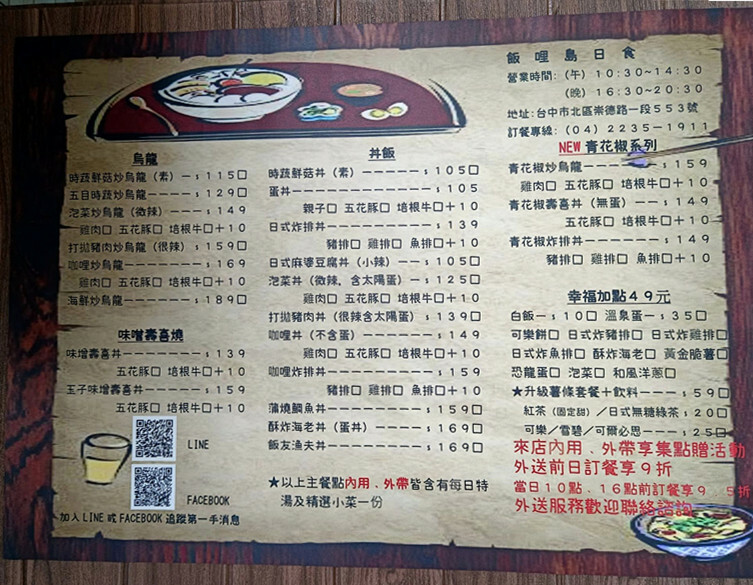 烏龍
時蔬鮮菇炒烏龍（素）－－：１１５□
五目時蔬炒烏龍－－－：１２９□
泡菜炒烏龍（微辣）－－：１４９
雞肉□ 五花豚□ 培根牛□＋１０
打拋豬肉炒烏龍（很辣）：１５９□
咖哩炒烏龍－－－－－－：１６９
雞肉□ 五花豚□ 培根牛□＋１０
海鮮炒烏龍－－－－－－：１８９□
味噌壽喜燒
味噌壽喜丼－－－－－－－：１３９
五花豚□ 培根牛□＋１０
玉子味噌壽喜丼－－－－－：１５９
五花豚□ 培根牛□＋１０
LINE
FACEBOOK
加入 LINE 或 FACEBOOK 追蹤第一手消息
丼飯
時蔬鮮菇丼（素）－－－－－－：１０５□
蛋丼－－－－－－－－－－－－：１０５
親子□ 五花豚□ 培根牛□＋１０
日式炸排丼－－－－－－－－－：１３９
豬排□ 雞排□ 魚排□＋１０
日式麻婆豆腐丼（小辣）－－－：１０５□
泡菜丼（微辣．含太陽蛋）－－：１２５□
雞肉□ 五花豚□ 培根牛□＋１０
打拋豬肉丼（很辣含太陽蛋）：１３９□
咖哩丼（不含蛋）－－－－－－：１４９
雞肉□ 五花豚□ 培根牛□＋１０
咖哩炸排丼－－－－－－－－－：１５９
豬排□ 雞排□ 魚排□＋１０
蒲燒鯛魚丼－－－－－－－－－：１５９□
酥炸海老丼（蛋丼）－－－－－：１６９□
飯友漁夫丼－－－－－－－－－：１６９□
★以上主餐點內用、外帶皆含有每日特
湯及精選小菜一份
飯哩島日食
營業時間：（午）１０：３０～１４：３０
（晚）１６：３０～２０：３０
地址：台中市北區崇德路一段５５３號
訂餐專線：（０４）２２３５－１９１１
NEW 青花椒系列
青花椒炒烏龍－－－－－－：１５９
雞肉□ 五花豚□ 培根牛□＋１０
青花椒壽喜丼（無蛋）－－：１４９
五花豚□ 培根牛□＋１０
青花椒炸排丼－－－－－－：１４９
豬排□ 雞排□ 魚排□＋１０
幸福加點４９元
白飯－：１０□ 溫泉蛋－：３５□
可樂餅□ 日式炸豬排□ 日式炸雞排□
日式炸魚排□ 酥炸海老□ 黃金脆薯□
恐龍蛋□ 泡菜□ 和風洋蔥□
★升級薯條套餐＋飲料－－－：５９□
紅茶（固定甜）／日式無糖綠茶：２０□
可樂／雪碧／可爾必思－－－：２５□
來店內用﹑外帶享集點贈活動
外送前日訂餐享９折
當日１０點﹑１６點前訂餐享９．５折
外送服務歡迎聯絡諮詢